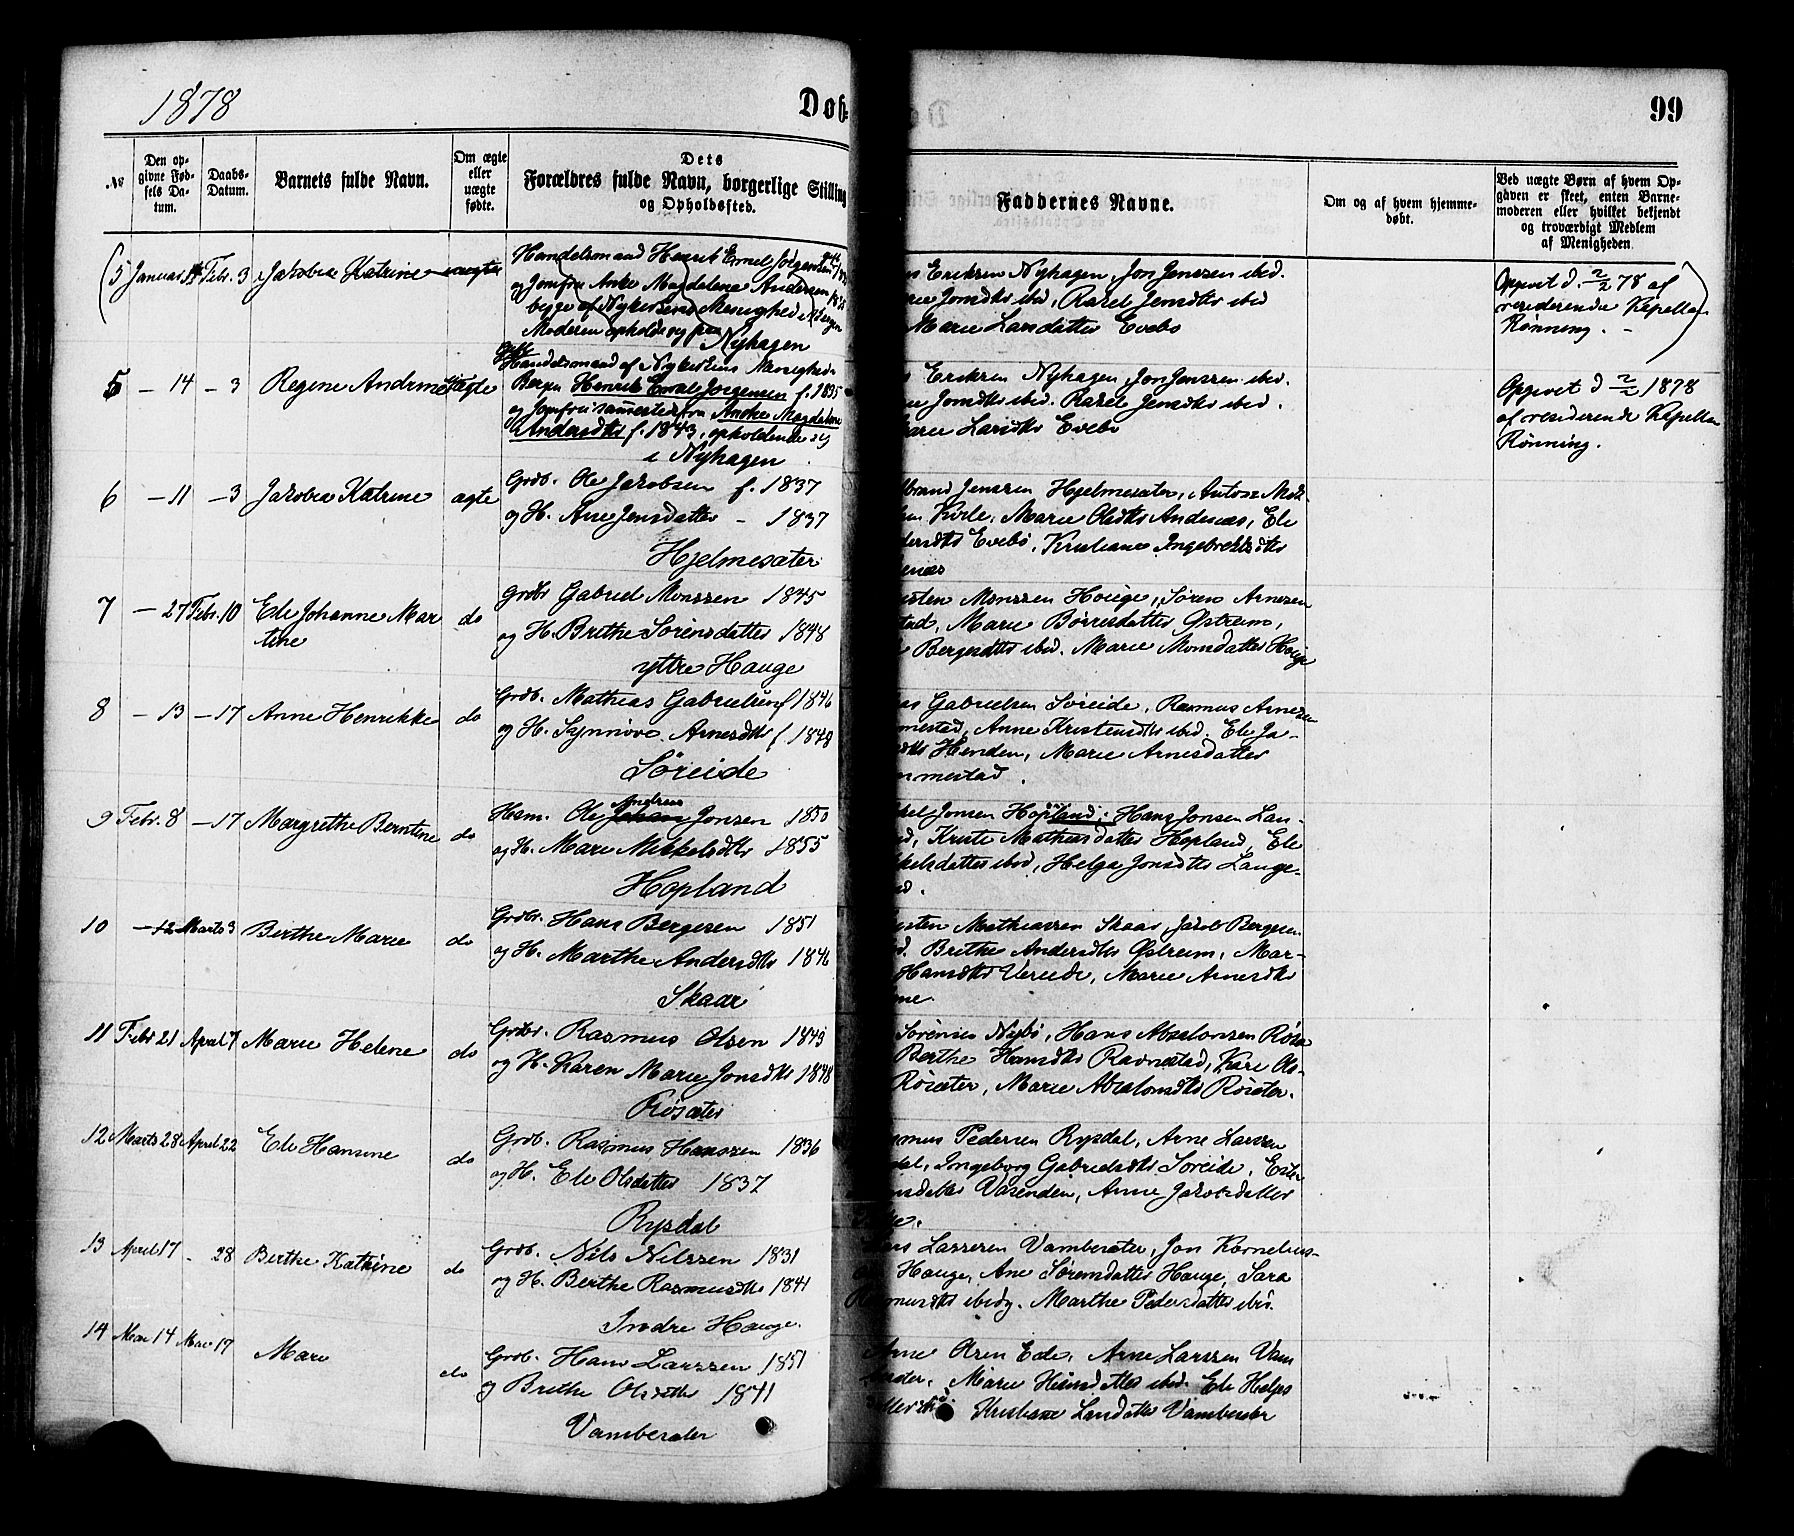 1878
Døb-
99
№
Den op-
givne Fød-
sels Da-
tum.
Daabs-
Datum.
Barnets fulde Navn.
Om ægte
eller
uægte
fødte.
Dets
Forældres fulde Navn, borgerlige Stilling
og Opholdssted.
Faddernes Navne.
Om og af hvem hjemme-
døbt.
Ved uægte Børn af hvem Op-
gaven er skeet, enten Barne-
moderen eller hvilket bekjendt
og troværdigt Medlem
af Menigheden.
5 Januar 14 Febr. 3 Jakobia Katrine uægte
Handelsmand Henrik Emil Jørgensen
og Jomfru Anke Magdalena Andersen
begge af Nykirkens Menighed i Bergen
Moderen opholder sig paa
Nyhagen
Eriksen Nyhagen, Jon Jenssen ibid.
Jonsdtr ibid, Rakel Jensdtr ibid
Marie Larsdatter Evebø
Opgivet d. 2/2 78 af
residerende Kapellan
Rønning. -
5 - 14 - 3 Regine Andrine uægte
gift
Handelsmand af Nykirkens Menighed
Bergen Henrik Emil Jørgensen f. 1835
og Jomfru sammesteds fra Anke Magdalene
Andersdtr f. 1843, opholdende sig
i Nyhagen
Eriksen Nyhagen, Jon Jenssen ibid.
Jonsdtr ibid. Rakel Jensdtr ibid.
Larsdtr Evebø
Opgivet d 2/2 1878
af residerende Kapellan
Rønning.
6 - 11 - 3 Jakobia Katrine ægte
Grdb. Ole Jakobsen f. 1837
og H. Ane Jensdatter - 1837
Hjelmesæter
brand Jenssen Hjelmesæter, Anton
Kirle, Marie Olsdtr Andenæs, Ele
Evebø, Kristiane Ingebrektsdtr
enæs
7 - 27 Febr. 10 Ele Johanne Mar
tine
do
Grdbr Gabriel Monssen 1845
og H. Brithe Sørensdatter 1848
yttre Hauge
Monssen Houge, Søren Arnesen
stad, Marie Børresdatter Østrem,
Bergesdtr ibid. Marie Monsdatter Houge
8 - 13 - 17 Anne Henrikke do
Grdb. Mathias Gabrielsen f 1846
og H. Synnøve Arnesdtr f 1848
Søreide
as Gabrielsen Søreide, Rasmus Arnesen
mestad, Anne Kristensdtr ibid. Ele Ja-
dtr Henden, Marie Arnesdatter
mmestad.
9 Febr. 8 - 17 Margrethe Berntine do
Andreas
Hsm. Ole Johan Jonsen 1850
og H. Mari Mikkelsdtr 1855
Hopland
kel Jonsen Hopland, Hans Jonsen Lan-
Kriste Mathiasdatter Hopland, Ele
kelsdatter ibid, Helga Jonsdtr Lange-
10 - 12 Marts 3 Berthe Marie do
Grdbr. Hans Bergesen 1851
og H. Marthe Andersdtr 1846
Skaar
sten Mathiassen Skaar, Jakob Bergesen
Brithe Andersdtr Østrem, Mar-
Hansdtr Vereide, Marie Arnesdtr
11 Febr 21 April 7 Marie Helene do
Grdbr. Rasmus Olsen 1843
og H. Karen Marie Jonsdtr 1848
Røsæter
Sørensen Nybø, Hans Absalonsen Røsæ
Berthe Hansdtr Ravnestad, Kari Ols-
Røsæter, Marie Absalonsdtr Røsæter.
12 Marts 28 April 22 Ele Hansine do
Grdb. Rasmus Hanssen 1836
og H. Ele Olsdatter 1837
Rysdal
mus Pedersen Rysdal, Arne Larssen
dal, Ingeborg Gabrielsdtr Søreide,
Vasenden, Anne Jakobsdatter
13 April 17 - 28 Berthe Katrine do
Grdb. Nils Nilssen 1831
og H. Berthe Rasmusdtr 1841
Indre Hauge.
Larssen Vambesæter, Jon Kornelius-
Hauge, Ane Sørensdatter Hauge, Sara
Rasmusdtr ibid. Marthe Pedersdatter ibid.
14 Mai 14 Mai 17 Mari do
Grdb. Hans Larssen 1851
og Brithe Olsdatter 1841
Vambesæter
Arne Olsen Ede, Arne Larssen Vam
Marie ibid. Ele Helges
Kristiane Larsdatter Vambesæter